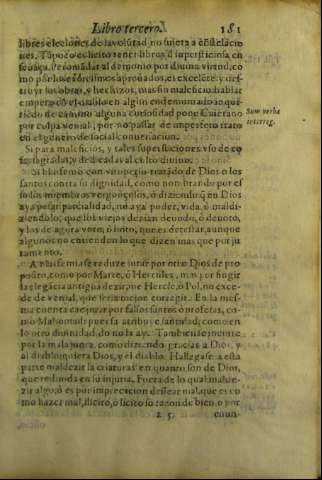 Libro tercero. 181
libres eleciones de la volūtad no sujeta a cōstelacio
nes. Tāpoco es licito tener libros d supersticiosa en
señāça. Pero mādar al demonio por diuina virtud, co
mo por los exorcismos aprouados, es excelēte y des-
truyr las obras, y hechizos, mas sin maleficio. hablar
empero cō el diablo en algun endemoniado inqui-
riēdo de camino alguna curiosidad pone Caietano
por culpa venial, por no passar de impertēte trato
en el genero de social conuersacion.
Sum. verba
interrog.
Si para maleficios, y tales supersticiones vso de co
sas sagradas, y dedicadas al culto diuino.
Si blasfemo con vituperio tratādo de Dios o los
santos contra su dignidad, como nombrando por el
los miembros vergonçosos, o diziendo q̄ en Dios
aya passar parcialidad, no aya poder, vida, o maldi-
ziendolo, que los viejos dezian deuodo, ò denoto,
y los de agora voto, ò boto, que es detestar, aunque
algunos no entienden lo que dizen mas que por ju
ramento.
A blasfemia se reduze jurar por otro Dios de pro
posito, como por Marte, ò Hercules, mas por fingir
la elegācia antigua dezir, me Hercle, ò Pol, no exce-
de de venial, que seria mejor corregir. En la mes-
ma cuenta cae jurar por falsos santos o profetas, co-
mo Mahoma:ls pues se atribuye santidad, como en
lo otro diuinidad, do no la ay. Tambien se incurre
por la mala junta, como diziendo gracias a Dios, y
al diablo: quiera Dios, y el diablo. Hallase a esta
parte maldezir las criaturas en quanto son de Dios,
que redunda en su injuria. Fuera de lo qual malde-
zir algo, ò es por imprecacion dessear mal, que es co
mo hazer mal, ilicito, ò licito so razon de bien, o por
z 5. enun